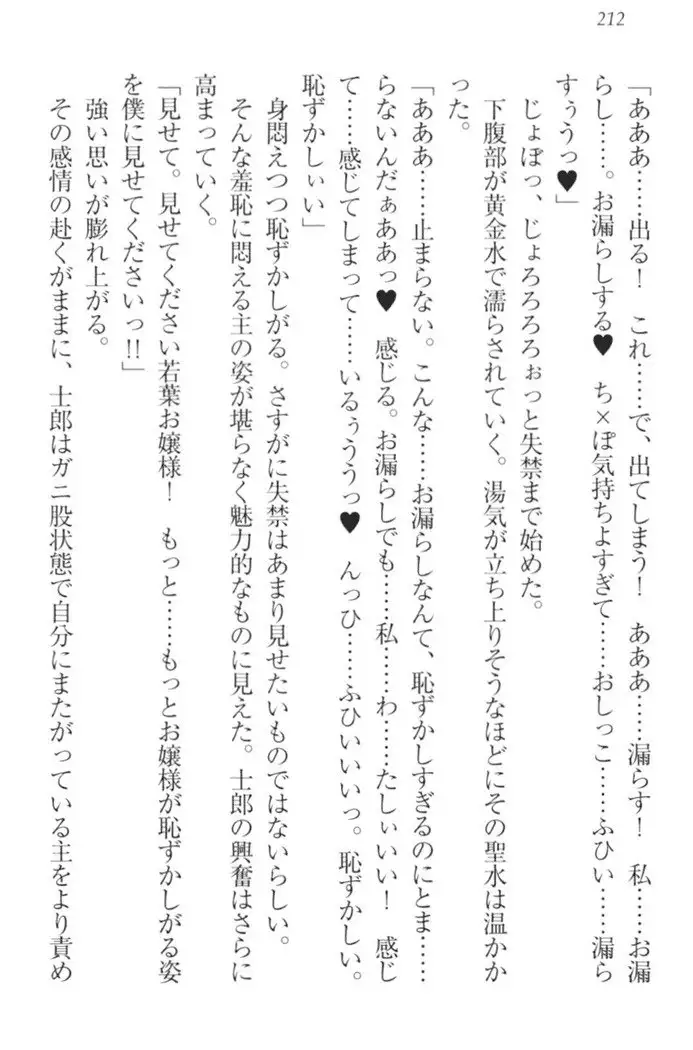 212
「あああ……出る！　これ……で、出てしまう！　あああ……漏らす！　私……お漏
らし……。お漏らしする♥　ち×ぽ気持ちよすぎて……おしっこ……ふひい……漏ら
すぅうっ♥」
じょぼっ、じょろろろろぉっと失禁まで始めた。
下腹部が黄金水で濡らされていく。湯気が立ち上りそうなほどにその聖水は温かか
った。
「あああ……止まらない。こんな……お漏らしなんて、恥ずかしすぎるのにとま……
らないんだぁああっ♥　感じる。お漏らしでも……私……わ……たしぃいい！　感じ
て……感じてしまって……いるぅううっ♥　んっひ……ふひいいいっ。恥ずかしい。
恥ずかしぃい」
身悶えつつ恥ずかしがる。さすがに失禁はあまり見せたいものではないらしい。
そんな羞恥に悶える主の姿が堪らなく魅力的なものに見えた。士郎の興奮はさらに
高まっていく。
「見せて。見せてください若葉お嬢様！　もっと……もっとお嬢様が恥ずかしがる姿
を僕に見せてくださいっ!!」
強い思いが膨れ上がる。
その感情の赴くがままに、士郎はガニ股状態で自分にまたがっている主をより責め